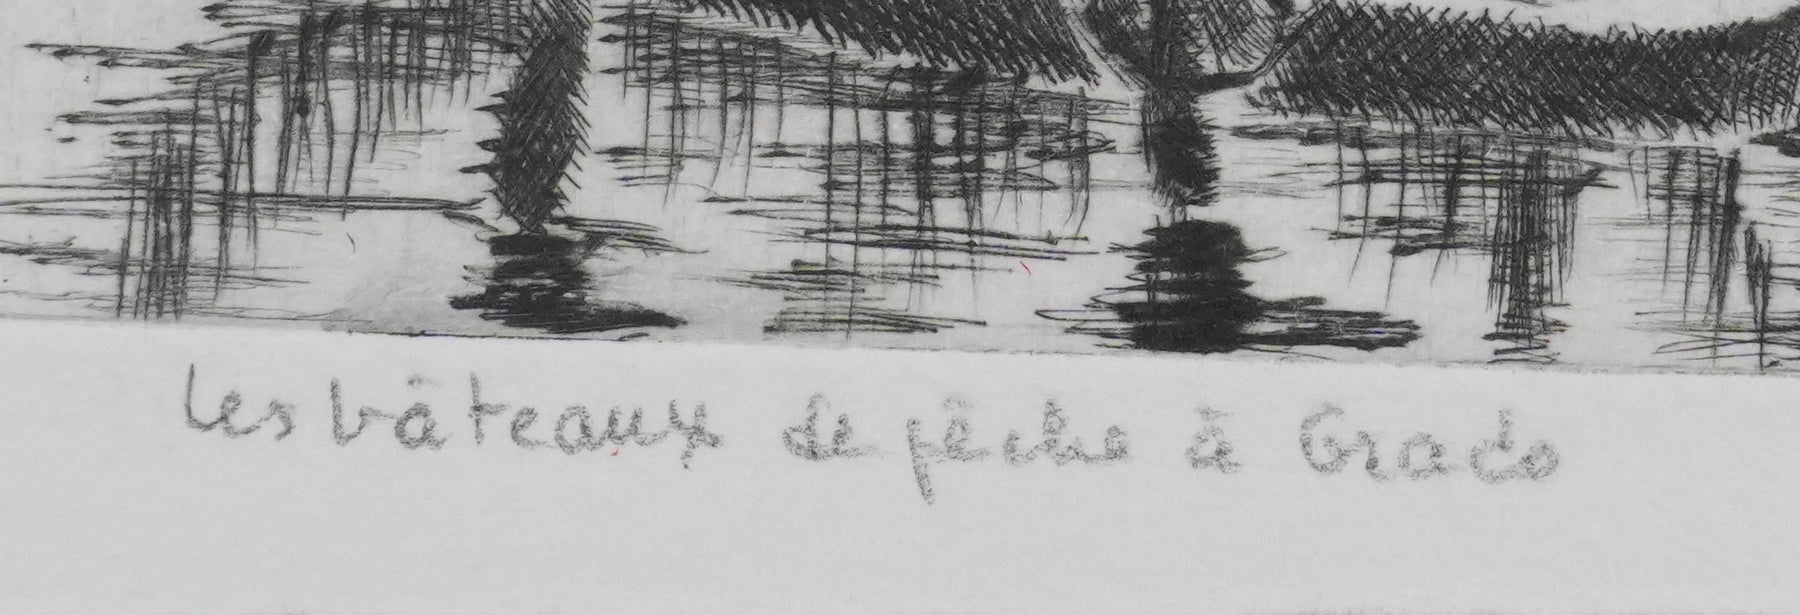 les bâteaux de pêche à Grado